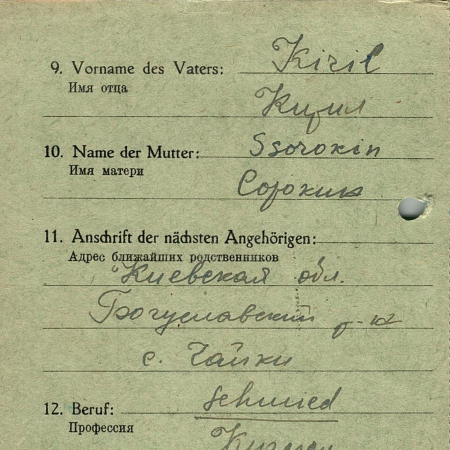 9. Vorname des Vaters: Kiril
Имя отца
Кирил
10. Name der Mutter: Ssorokin
Имя матери
Сорокина
11. Anschrift der nächsten Angehörigen:
Адрес ближайших родственников
Киевская обл.
Богуславский р-н
с. Чайки
12. Beruf: Schmied
Профессия